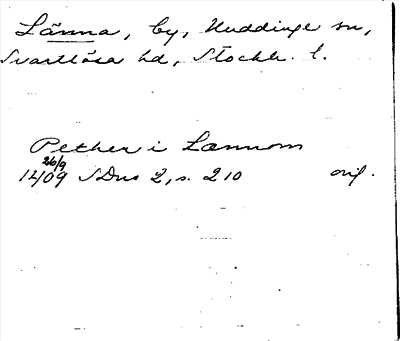 Länna, by, Huddinge sn,
Svartlösa hd, Stockh. l.
Pether i Lannom
26/9
1409 SDns 2, s. 210 orig.